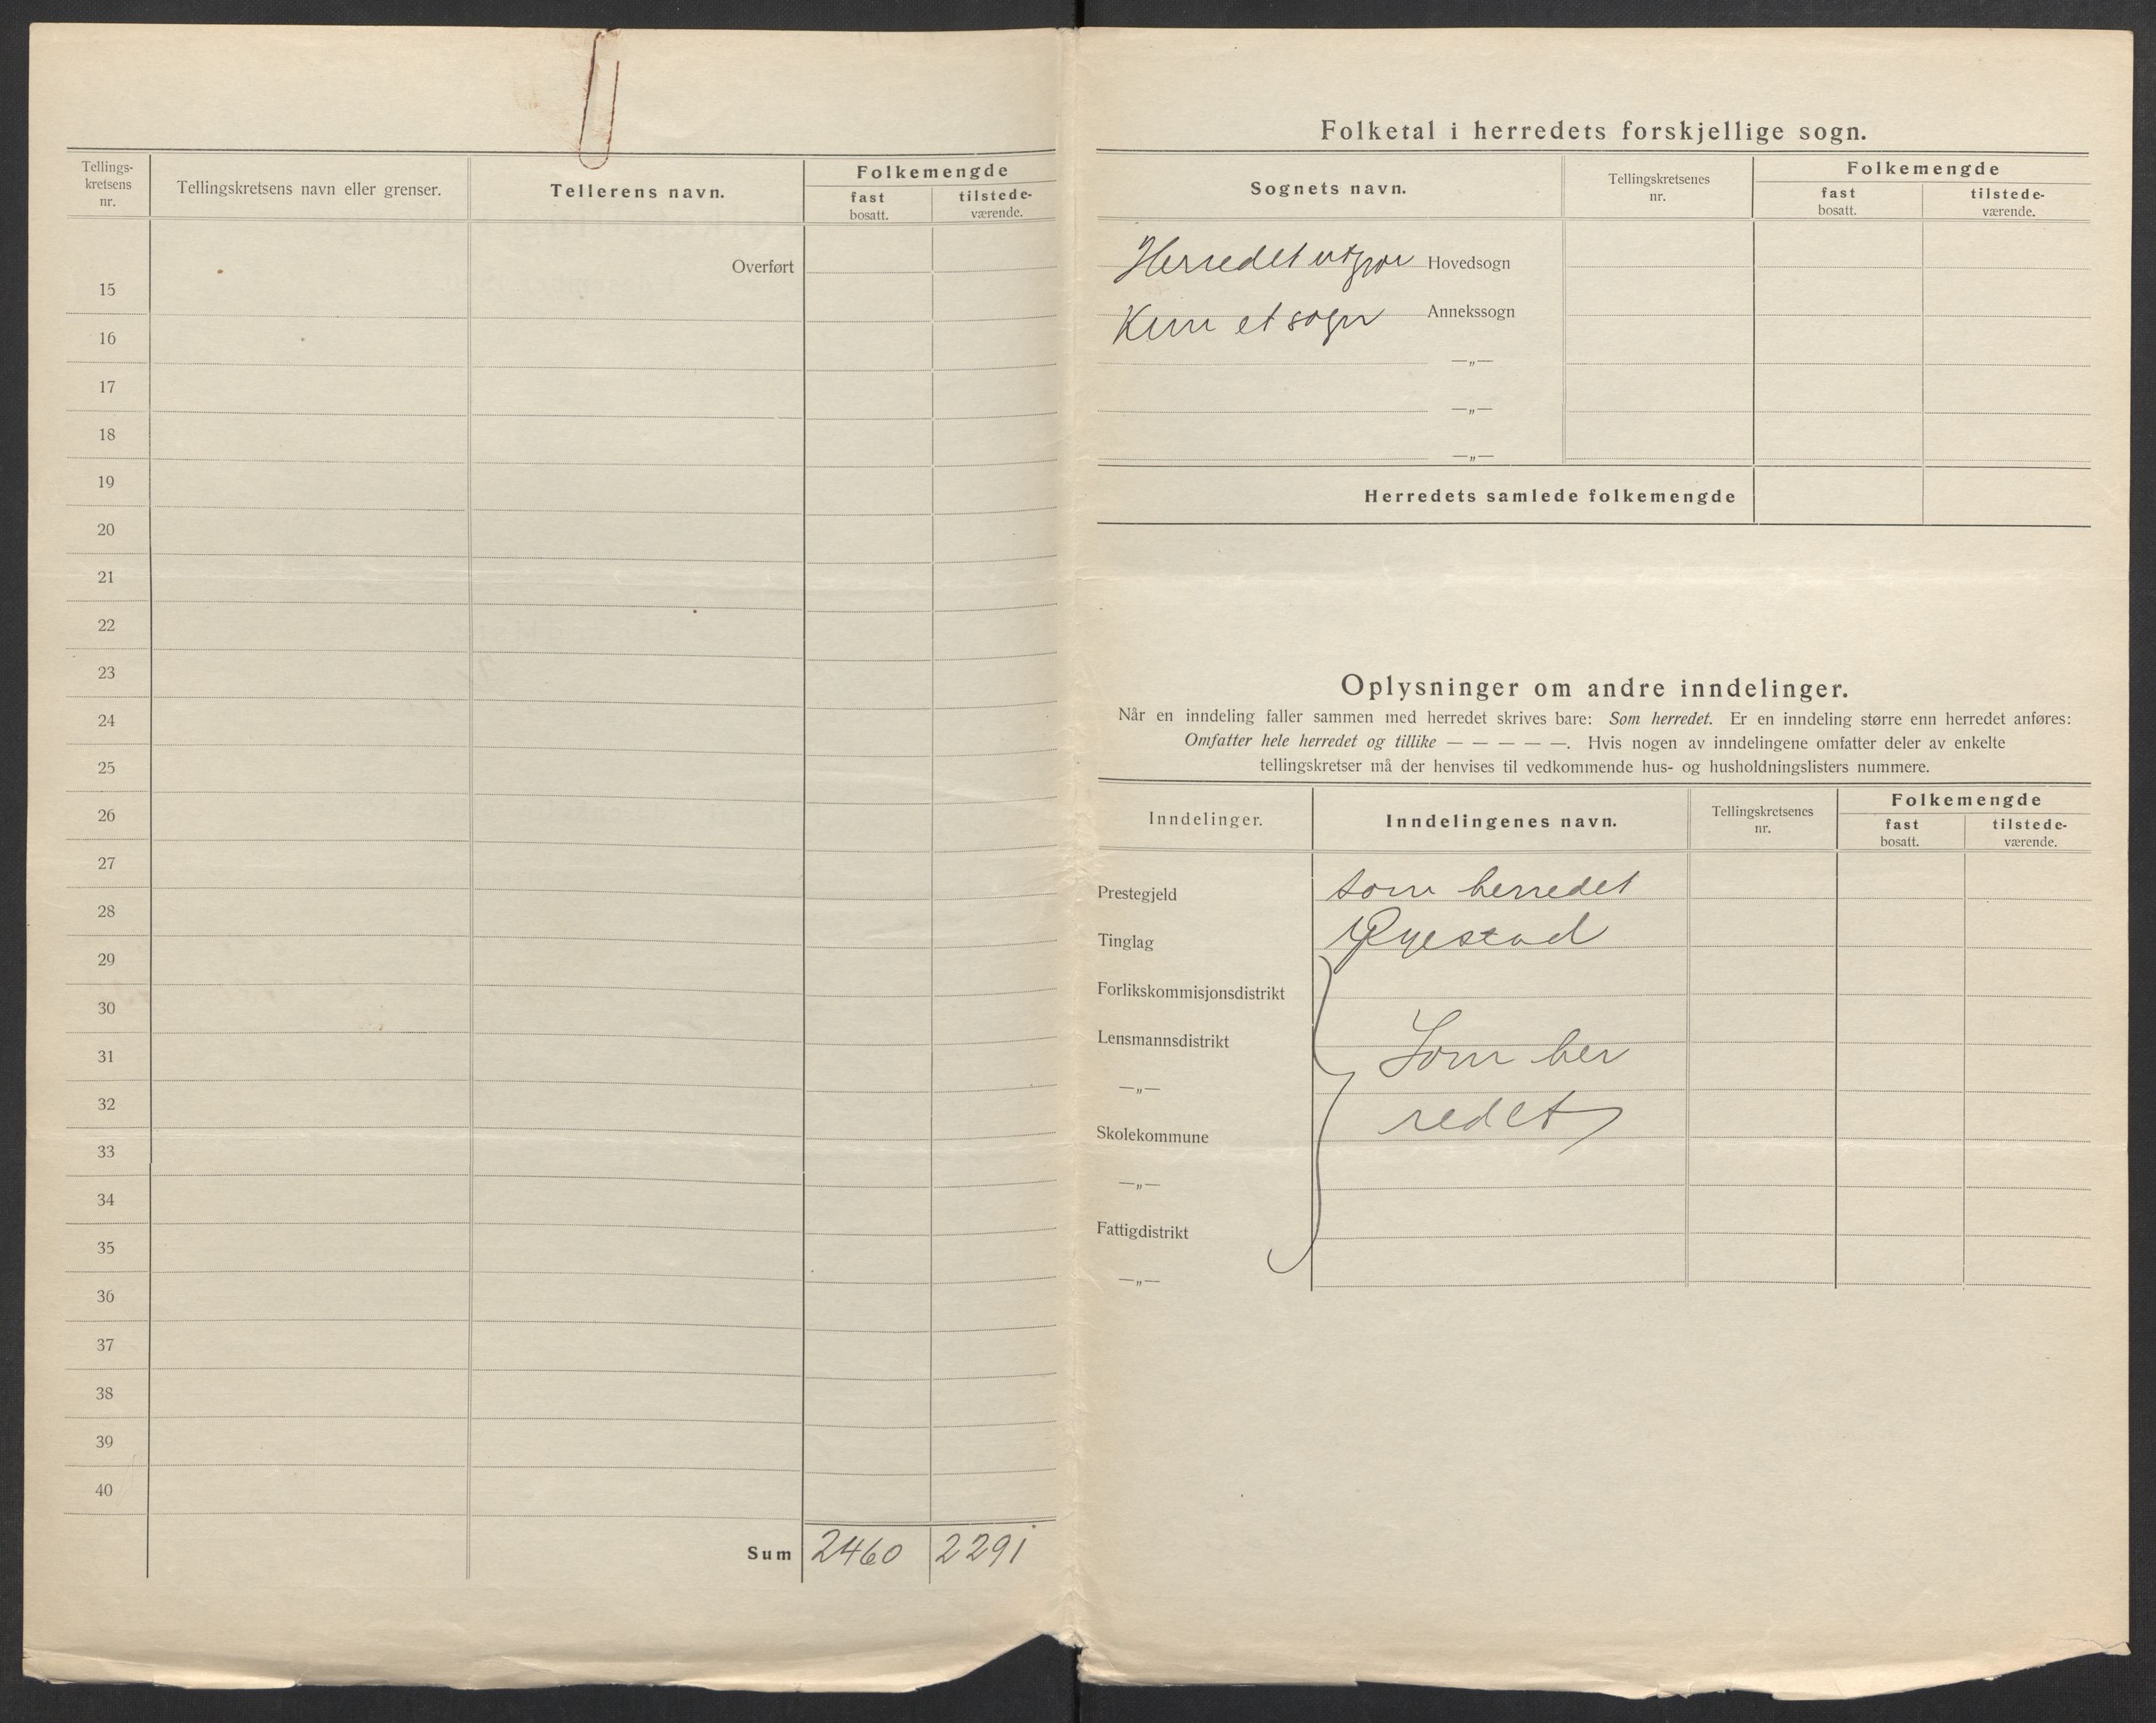 Tellings-
kretsens
nr.
Tellingskretsens navn eller grenser.
Tellerens navn.
Folkemengde
fast
bosatt.
tilstede-
værende.
Overført
15
16
17
18
19
20
21
22
23
24
25
26
27
28
29
30
31
32
33
34
35
36
37
38
39
40
Sum 2460 2291
Folketal i herredets forskjellige sogn.
Sognets navn.
Tellingskretsenes
nr.
Folkemengde
fast
bosatt.
tilstede-
værende.
Herredet utgjør Hovedsogn
Kun et sogn Annekssogn
—„—
—„—
—„—
Herredets samlede folkemengde
Oplysninger om andre inndelinger.
Når en inndeling faller sammen med herredet skrives bare: Som herredet. Er en inndeling større enn herredet anføres:
Omfatter hele herredet og tillike — — — — —. Hvis nogen av inndelingene omfatter deler av enkelte
tellingskretser må der henvises til vedkommende hus- og husholdningslisters nummere.
Inndelinger.
Inndelingenes navn.
Tellingskretsenes
nr.
Folkemengde
fast
bosatt.
tilstede-
værende.
Prestegjeld som herredet
Tinglag Øyestad
Forlikskommisjonsdistrikt
Lensmannsdistrikt Som her
—„—
Skolekommune redet
—„—
Fattigdistrikt
—„—